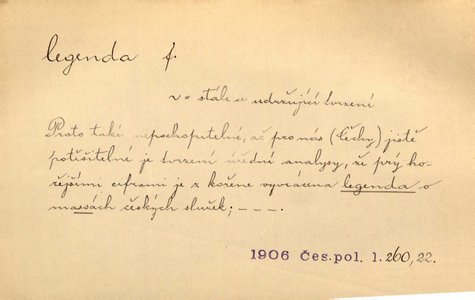 legenda f.
~ = stále se udržující tvrzení
Proto také nepochopitelné, ač pro nás (Čechy) jistě
potěšitelné je tvrzení úřední analysy, že prý ho-
řejšími ciframi je z kořene vyvrácena legenda o
massách českých služek; – – –.
1906 Čes. pol. 1. 260, 22.